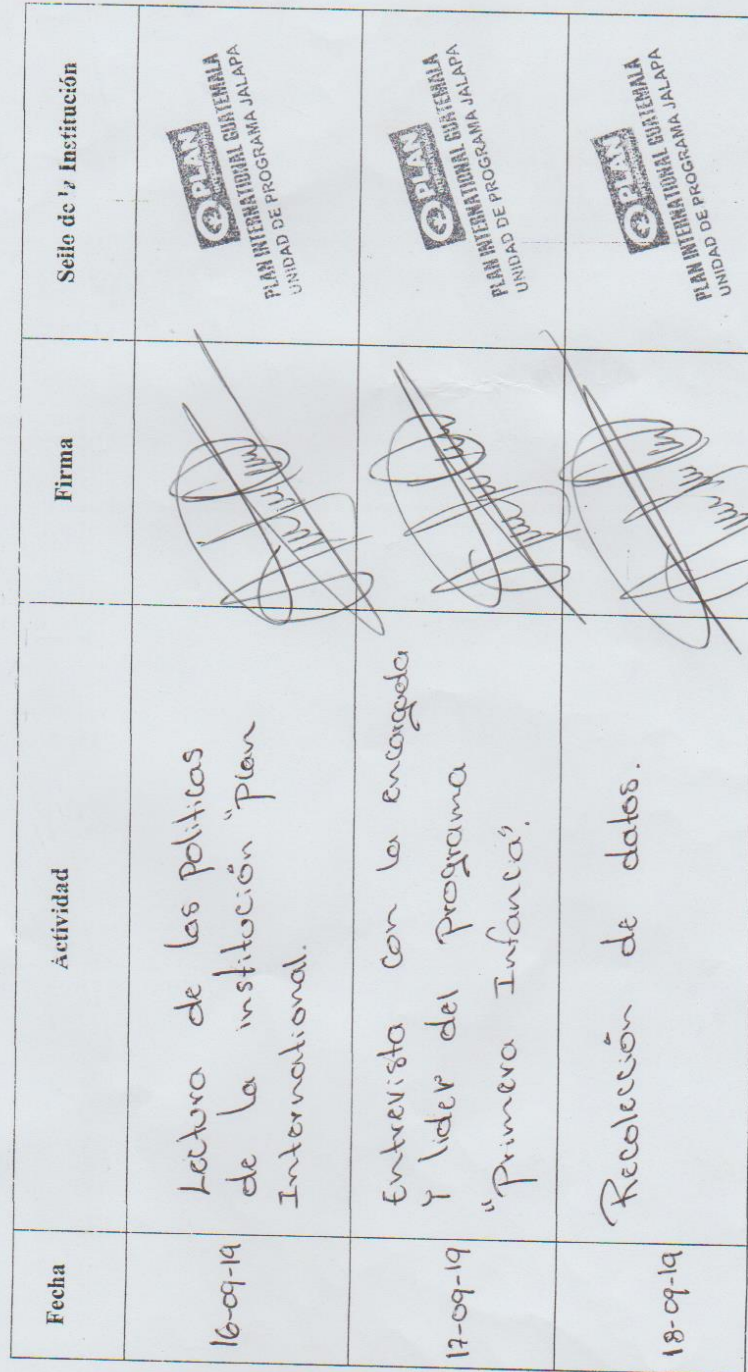 Fecha
Actividad
Firma
Sello de la Institución
16-09-19
Lectura de las politicas
de la institución "plan
International.
PLAN
PLAN INTERNATIONAL GUATEMALA
UNIDAD DE PROGRAMA JALAPA
17-09-19
Entrevista con la encargada
y lider del programa
"Primera Infanca".
PLAN
PLAN INTERNATIONAL GUATEMALA
UNIDAD DE PROGRAMA JALAPA
18-09-19
Recolección de datos.
PLAN
PLAN INTERNATIONAL GUATEMALA
UNIDAD DE PROGRAMA JALAPA